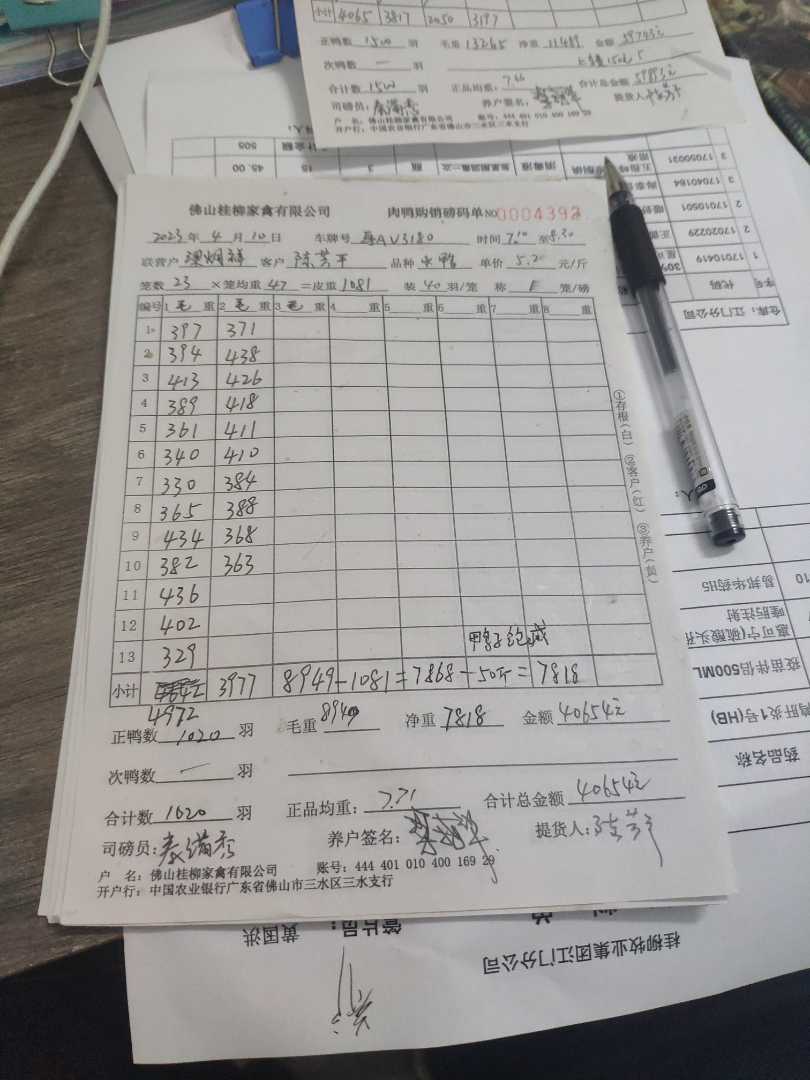 小计 4065 3817 2050 3197
正鸭数 1500 羽 毛重 13265 净重 11489 金额
次鸭数 一 羽
合计数 1500 羽 正品均重: 7.66 合计总金额
司磅员: 养户签名: 提货人:
户 名: 佛山桂柳家禽有限公司 账号: 444 401 010 400 169 29
开户行: 中国农业银行广东省佛山市三水区三水支行
合计金额 505
45.00 15 3 瓶 消毒液
17050021 3
17040184 2
17010501 2
17020229 2
17010419 1
代码 序号
仓库: 江门分公司
佛山桂柳家禽有限公司 肉鸭购销磅码单 NO 0004392
2023 年 4 月 10 日 车牌号 粤AV3180 时间 7.10 至 8.30
联营户 客户 陈芳平 品种 水鸭 单价 5.20 元/斤
笼数 23 ×笼均重 47 =皮重 1081 装 40 羽/笼 称 笼/磅
编号 1 毛 重 2 毛 重 3 毛 重 4 重 5 重 6 重 7 重 8 重
1 397 371
2 394 438
3 413 426
4 389 418
5 361 411
6 340 410
7 330 384
8 365 388
9 434 368
10 382 363
11 436
12 402
13 329
小计 4972 3977 8949-1081=7868-50斤=7818
正鸭数 1020 羽 毛重 8949 净重 7818 金额 40654元
次鸭数 一 羽
合计数 1020 羽 正品均重: 7.71 合计总金额 40654元
司磅员: 养户签名: 提货人:
户 名: 佛山桂柳家禽有限公司 账号: 444 401 010 400 169 29
开户行: 中国农业银行广东省佛山市三水区三水支行
①存根(白) ②客户(红) ③养户(黄)
易邦华药H5
嗉脂注射
疫苗伴侣500ML
鸭肝炎1号(HB)
药品名称
桂柳牧业集团江门分公司
管片员: 黄国洪